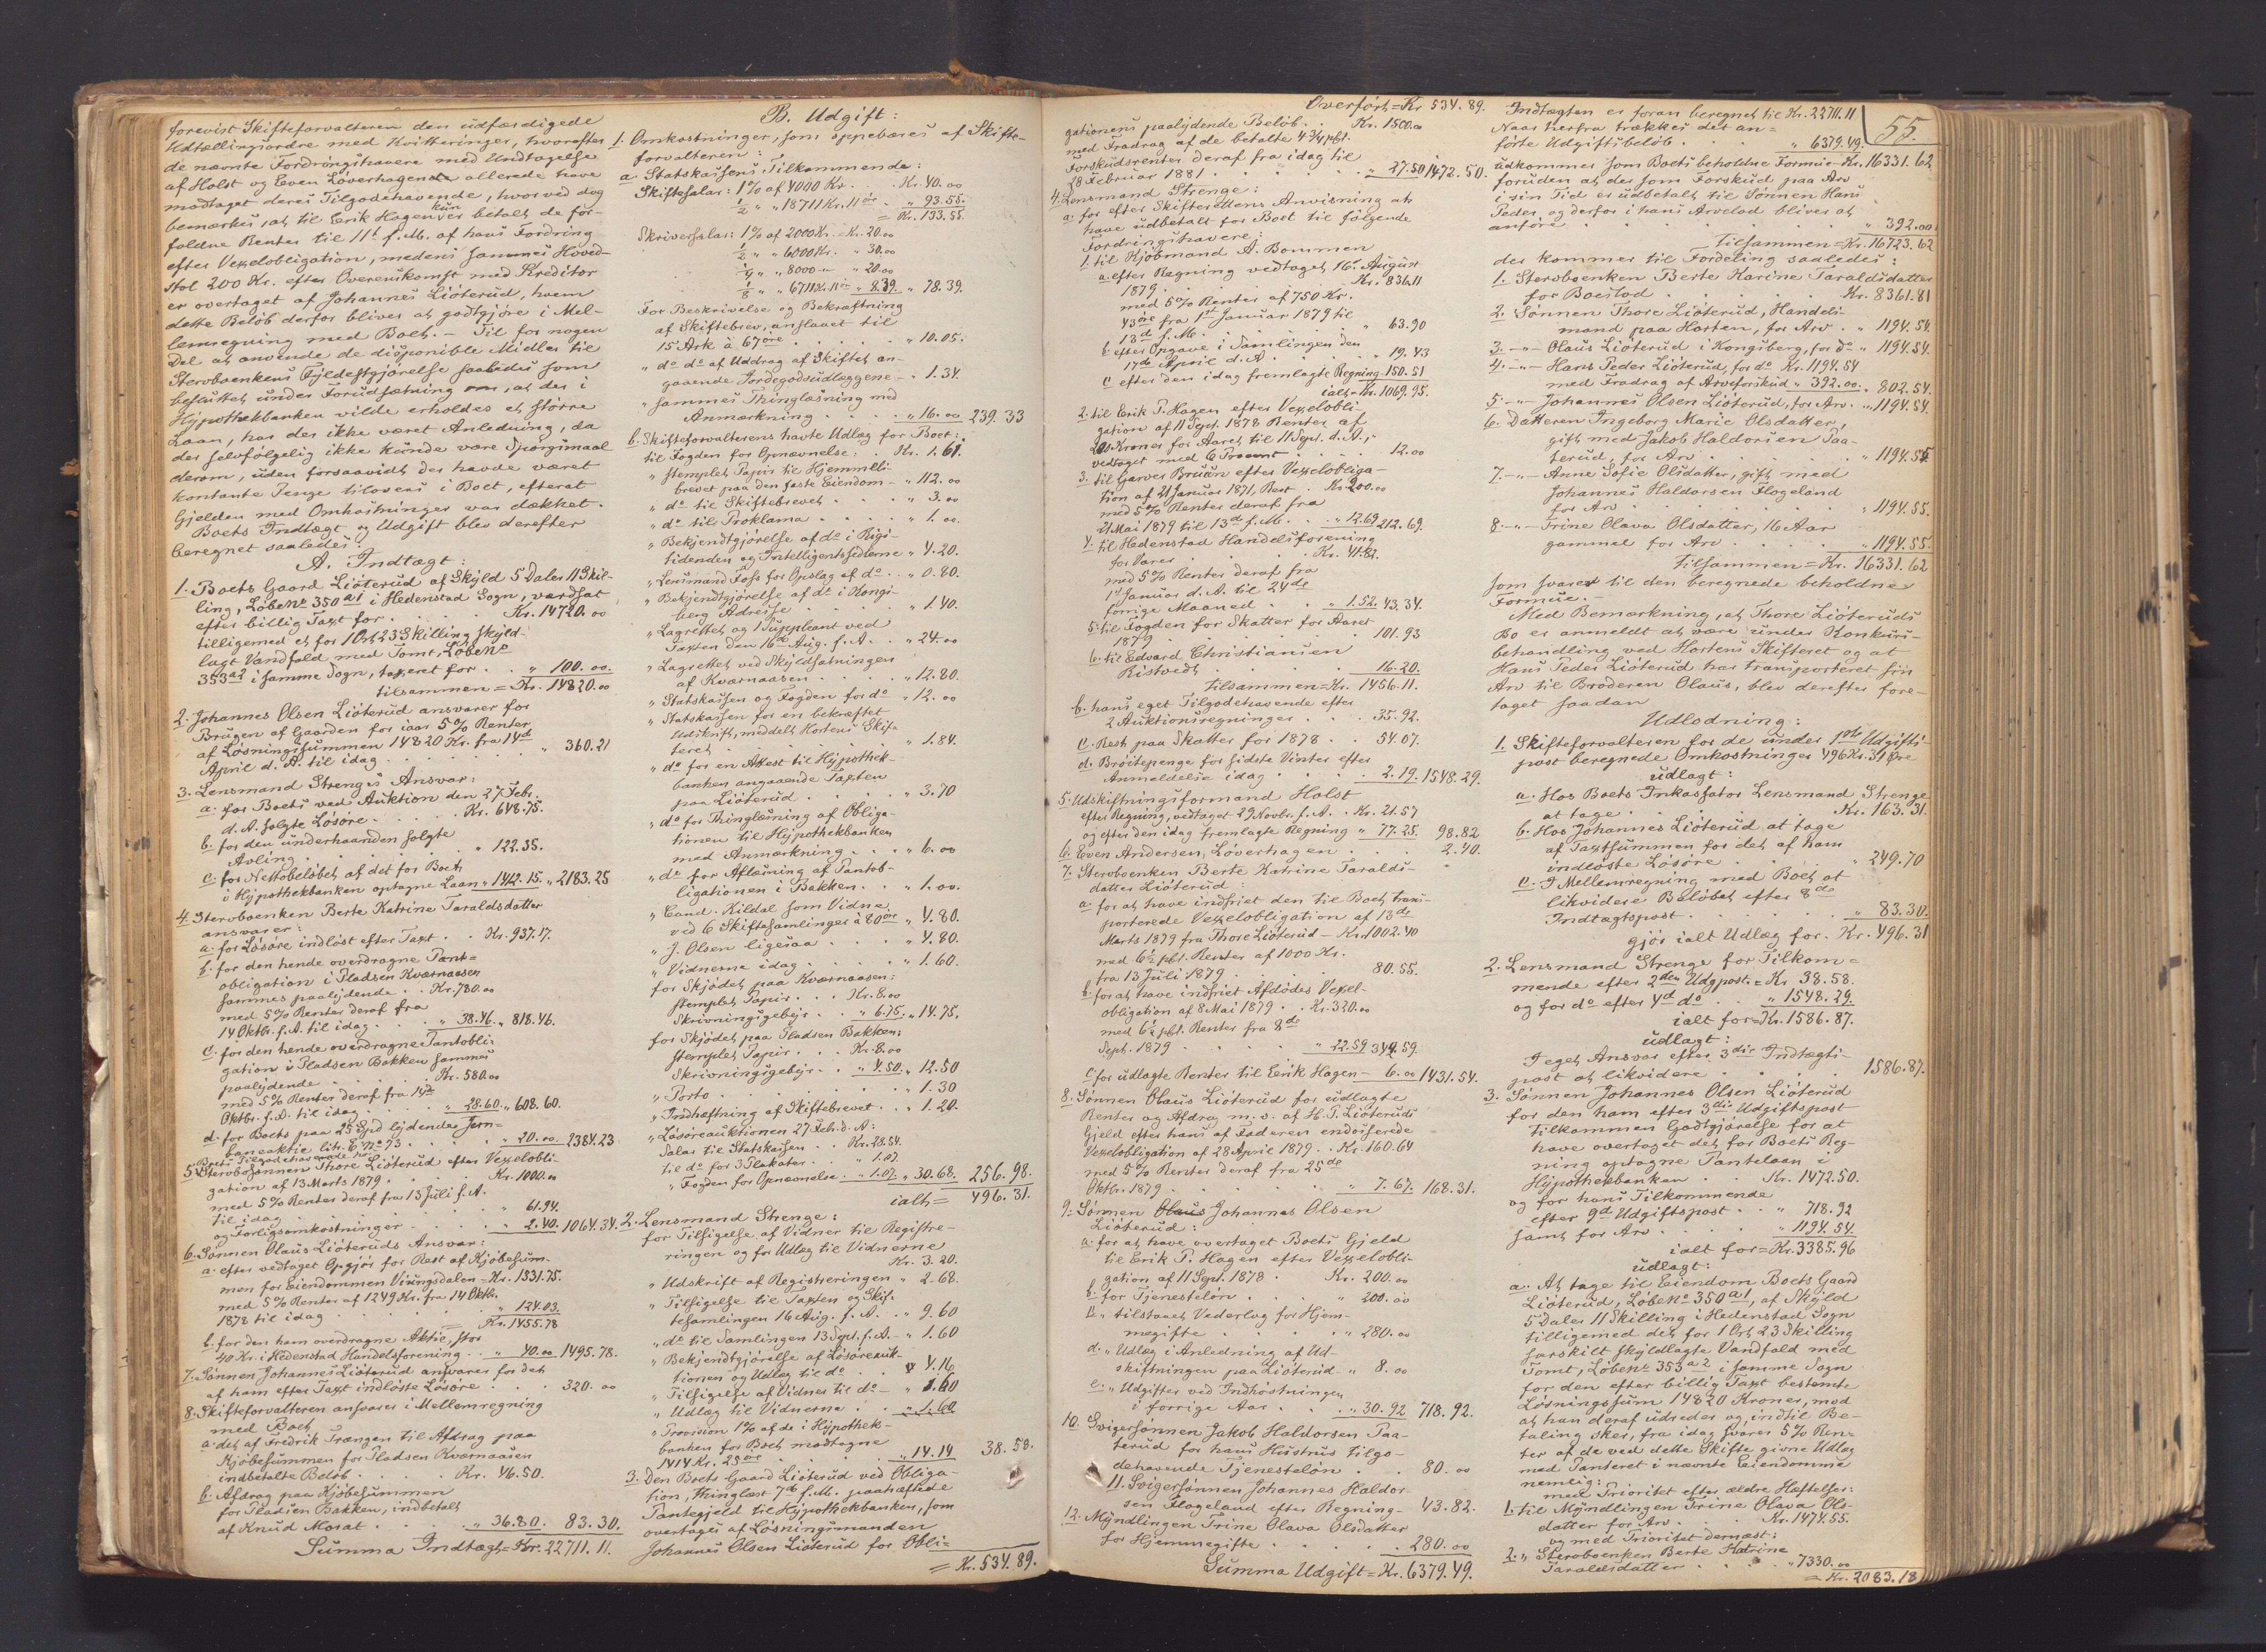 forevist Skifteforvalteren den udfærdigede
Udtællingsordre med Kvitteringer, hvorefter
de nævnte Fordringshavere med Undtagelse
af Holst og Even Løverhagen allerede have
modtaget deres Tilgodehavende, hvorved dog
bemærkes, at til Erik Hagen kun er betalt de for-
faldne Renter til 11t f.M. af hans Fordring
efter Vexelobligation, medens sammes Hoved-
stol 200 Kr. efter Overenskomst med Kreditor
er overtaget af Johannes Lióterud, hvem
dette Beløb derfor bliver at godtgjøre i Mel-
lemregning med Boet. – Til for nogen
Del at anvende de disponible Midler til
Stervboenkens Fyldestgjørelse saaledes som
besluttet under Forudsætning, at der i
Hypothekbanken vilde erholdes et større
Laan, har der ikke været Anledning, da
der selvfølgelig ikke kunde være Spørgsmaal
derom, uden forsaavidt der havde været
kontante Penge tilovers i Boet, efterat
Gjelden med Omkostninger var dækket.
Boets Indtægt og Udgift blev derefter
beregnet saaledes:
A. Indtægt:
1. Boets Gaard Lióterud af Skyld 5 Daler 11 Skil-
ling, Løbe No 350 a1 i Hedenstad Sogn, værdsat
efter billig Taxt for . . Kr. 14720.00
tilligemed et for 1 Ort 23 Skilling skyld-
lagt Vandfald med Tomt, Løbe No
353 a2 i samme Sogn, taxeret for . . " 100.00.
tilsammen = Kr. 14820.00
2. Johannes Olsen Lióterud ansvarer for
Brugen af Gaarden for iaar 5% Renter
af Løsningssummen 14820 Kr. fra 14d
April d. A. til idag . . . " 360.21
3. Lensmand Strenges Ansvar:
a. for Boets ved Auktion den 27 Febr.
d. A. solgte Løsøre . . . Kr. 648.75.
b. for den underhaanden solgte
Avling . . . " 122.35.
c. for Nettobeløbet af det for Boet
i Hypothekbanken optagne Laan " 1412.15. " 2183.25
4. Stervboenken Berte Katrine Taraldsdatter
ansvarer:
a. for Løsøre indløst efter Taxt . . Kr. 937.17.
b. for den hende overdragne Pant=
obligation i Pladsen Kværnaasen
sammes paalydende . . Kr. 780.00
med 5% Renter deraf fra
14 Oktbr. f. A. til idag . . " 38.46. " 818.46.
c. for den hende overdragne Pantobli-
gation i Pladsen Bakken sammes
paalydende . . . Kr. 580.00
med 5% Renter deraf fra 14de
Oktbr. f. A. til idag . . " 28.60. " 608.60.
d. for Boets paa 25 Spd lydende Jern=
baneaktie Litr. C No 73 . . " 20.00. 2384.23
5. Boets Tilgodehavende hos
Stervbosønnen Thore Lióterud efter Vexelobli-
gation af 13 Marts 1879 . . Kr. 1000.00
med 5% Renter deraf fra 13 Juli f. A.
til idag . . . " 61.94.
og Forligsomkostninger . . " 2.40. 1064.34.
6. Sønnen Olaus Lióteruds Ansvar:
a. efter vedtaget Opgjør for Rest af Kjøbesum-
men for Eiendommen Visingsdalen = Kr. 1331.75.
med 5% Renter af 1249 Kr. fra 14 Oktbr.
1878 til idag . . . " 124.03.
= Kr. 1455.78
b. for den ham overdragne Aktie, stor
40 Kr. i Hedenstad Handelsforening . . " 40.00 1495.78.
7. Sønnen Johannes Lióterud ansvarer for det
af ham efter Taxt indløste Løsøre . . . 320.00
8. Skifteforvalteren ansvarer i Mellemregning
med Boet
a. det af Fredrik Trængen til Afdrag paa
Kjøbesummen for Pladsen Kværnaasen
indbetalte Beløb . . Kr. 46.50.
b. Afdrag paa Kjøbesummen
for Pladsen Bakken, indbetalt
af Knud Morat . . . " 36.80. 83.30.
Summa Indtægt = Kr. 22711.11.
B. Udgift:
1. Omkostninger, som oppebæres af Skifte-
forvalteren:
a. Statskassens Tilkommende:
Skiftesalær: 1% af 4000 Kr. . . Kr. 40.00
1/2 " " 18711 Kr. 11 øre . " 93.55.
= Kr. 133.55.
Skriversalær: 1% af 2000 Kr. = Kr. 20.00
1/2 " " 6000 Kr. " 30.00
1/4 " " 8000 – " 20.00
1/8 " " 6711 Kr. 11 øre " 8.39. " 78.39.
For Beskrivelse og Bekræftning
af Skiftebrev, anslaaet til
15 Ark à 67 øre . . . " 10.05.
" do do af Uddrag af Skiftet an-
gaaende Jordegodsudlæggene – " 1.34.
" sammes Thinglæsning med
Anmærkning . . . " 16.00 239.33
b. Skifteforvalterens havte Udlæg for Boet:
til Fogden for Opnævnelse: . Kr. 1.61.
" stemplet Papir til Hjemmels-
brevet paa den faste Eiendom – " 112.00
" do til Skiftebrevet . . . " 3.00
" do til Proklama . . . " 1.00.
" Bekjendtgjørelse af do i Rigs-
tidenden og Intelligentssedlerne " 4.20.
" Lensmand Foss for Opslag af do . . " 0.80.
" Bekjendtgjørelse af do i Kongs-
berg Adresse . . . " 1.40.
" Lagrettet og 1 Suppleant ved
Taxten den 16de Aug. f. A. . . " 24.00
" Lagrettet ved Skyldsætningen
af Kværnaasen . . . " 12.80.
" Statskassen og Fogden for do " 12.00
" Statskassen for en bekræftet
Udskrift, meddelt Hortens Skif-
teret . . . " 1.84.
" do for en Attest til Hypothek-
banken angaaende Taxten
paa Lióterud . . . " 3.70
" do for Thinglæsning af Obliga-
tionen til Hypothekbanken
med Anmærkning . . . " 6.00
" do for Aflæsning af Pantob-
ligationen i Bakken . . " 1.00.
" Cand. Kildal som Vidne
ved 6 Skiftesamlinger à 80 øre " 4.80.
" J. Olsen ligesaa . . . " 4.80.
" Vidnerne idag . . . " 1.60.
for Skjødet paa Kværnaasen:
stemplet Papir . . . Kr. 8.00
Skrivningsgebyr . . " 6.75. " 14.75.
for Skjødet paa Pladsen Bakken:
stemplet Papir . . . Kr. 8.00
Skrivningsgebyr . . " 4.50. " 12.50
" Porto . . . " 1.30
" Indhæftning af Skiftebrevet . . " 1.20.
" Løsøreauktionen 27 Feb. d. A:
Salær til Statskassen . . Kr. 28.54.
til do for 3 Plakater . . " 1.07.
" Fogden for Opnævnelse . . " 1.07. " 30.68. 256.98.
ialt = 496.31.
2. Lensmand Strenge:
for Tilsigelse af Vidner til Registre-
ringen og for Udlæg til Vidnerne
Kr. 3.20.
" Udskrift af Registreringen " 2.68.
" Tilsigelse til Taxten og Skif-
tesamlingen 16 Aug. f. A. . . " 9.60
" do til Samlingen 13 Sept. f. A. – " 1.60
" Bekjendtgjørelse af Løsøreauk-
tionen og Udlæg til do . . " 4.16
" Tilsigelse af Vidner til do – " 1.60
" Udlæg til Vidnerne . . " 1.60
" Provision 1% af de i Hypothek-
banken for Boet modtagne
1414 Kr. 25 øre . . . " 14.14 38.58.
3. Den Boets Gaard Lióterud ved Obliga-
tion, thinglæst 7de f. M. paahæftede
Pantegjeld til Hypothekbanken, som
overtages af Løsningsmanden
Johannes Olsen Lióterud for Obli=
= Kr. 534.89.
Overført = Kr. 534.89.
gationens paalydende Beløb . . Kr. 1500.00
med Fradrag af de betalte 4 3/4 pCt.
Forskudsrenter deraf fra idag til
28 Februar 1881 . . . " 27.50 1472.50.
4. Lensmand Strenge:
a. for efter Skifterettens Anvisning at
have udbetalt for Boet til følgende
Fordringshavere:
1. til Kjøbmand A. Bommen
a. efter Regning vedtaget 16. August
1879 . . . Kr. 836.11
med 5% Renter af 750 Kr.
43 øre fra 1st Januar 1879 til
13d f. M. . . . " 63.90
b. efter Opgave i Samlingen den
14de April d. A. . . . " 19.43
c. efter den idag fremlagte Regning – 150.51
ialt = Kr. 1069.95.
2. til Erik P. Hagen efter Vexelobli-
gation af 11 Sept. 1878 Renter af
200 Kroner for Aaret til 11 Sept. d. A.,
vedtaget med 6 Procent . . . 12.00
3. til Garver Bruun efter Vexelobliga-
tion af 21 Januar 1871, Rest . Kr. 200.00
med 5% Renter deraf fra
21 Mai 1879 til 13de f. M. . . " 12.69 212.69.
4. til Hedenstad Handelsforening
for Varer . . . Kr. 41.82.
med 5% Renter deraf fra
1st Januar d. A. til 24de
forrige Maaned . . " 1.52. 43.34.
5. til Fogden for Skatter for Aaret
1879 . . . 101.93
6. til Edvard Christiansen
Ristvedt . . . 16.20.
tilsammen = Kr. 1456.11.
b. hans eget Tilgodehavende efter
2 Auktionsregninger . . . 35.92.
c. Rest paa Skatter for 1878 . . 54.07.
d. Brøitepenge for sidste Vinter efter
Anmeldelse idag . . . 2.19. 1548.29.
5. Udskiftningsformand Holst
efter Regning, vedtaget 29 Novbr. f. A. . Kr. 21.57
og efter den idag fremlagte Regning " 77.25. 98.82
6. Even Andersen Løverhagen . . . 2.40.
7. Stervboenken Berte Katrine Taralds-
datter Lióterud:
a. for at have indfriet den til Boet trans-
porterede Vexelobligation af 13de
Marts 1879 fra Thore Lióterud – Kr. 1002.40
med 6 1/2 pCt. Renter af 1000 Kr.
fra 13 Juli 1879 . . . 80.55.
b. for at have indfriet Afdødes Vexel-
obligation af 8 Mai 1879 . . Kr. 320.00
med 6 1/2 pCt. Renter fra 8de
Sept. 1879 . . . " 22.59 342.59.
c. for udlagte Renter til Erik Hagen – 6.00 1431.54.
8. Sønnen Olaus Lióterud for udlagte
Renter og Afdrag m.v. af H. P. Lióteruds
Gjeld efter hans af Faderen endosserede
Vexelobligation af 28 April 1879 . . Kr. 160.64
med 5% Renter deraf fra 25de
Oktbr. 1879 . . . " 7.67. 168.31.
9. Sønnen Johannes Olsen
Lióterud:
a. for at have overtaget Boets Gjeld
til Erik P. Hagen efter Vexelobli-
gation af 11 Sept. 1878 . . Kr. 200.00
b. for Tjenesteløn . . . " 200.00
c. " tilstaaet Vederlag for Hjem-
megifte . . . " 280.00
d. " Udlæg i Anledning af Ud-
skiftningen paa Lióterud – " 8.00
e. " Udgifter ved Indhøstningen
i forrige Aar . . . " 30.92 718.92.
10. Svigersønnen Jakob Haldorsen Paa-
terud for hans Hustrus tilgo-
dehavende Tjenesteløn . . 80.00
11. Svigersønnen Johannes Haldor-
sen Flogeland efter Regning – 43.82.
12. Myndlingen Trine Olava Olsdatter
for Hjemmegifte . . . 280.00
Summa Udgift = Kr. 6379.49.
55.
Indtægten er foran beregnet til Kr. 22711.11
Naar herfra trækkes det an=
førte Udgiftsbeløb . . . " 6379.49.
udkommer som Boets beholdne Formue – Kr. 16331.62
foruden at der som Forskud paa Arv
i sin Tid er udbetalt til Sønnen Hans
Peder og derfor i hans Arvelod bliver at
anføre . . . " 392.00
Tilsammen = Kr. 16723.62
der kommer til Fordeling saaledes:
1. Stervboenken Berte Karine Taraldsdatter
for Boeslod . . . Kr. 8361.81
2. Sønnen Thore Lióterud, Handels-
mand paa Horten, for Arv . . " 1194.54.
3. –"– Olaus Lióterud i Kongsberg, for do " 1194.54.
4. –"– Hans Peder Lióterud, for do Kr. 1194.54
med Fradrag af Arveforskud " 392.00. " 802.54.
5. –"– Johannes Olsen Lióterud, for Arv . " 1194.54.
6. Datteren Ingeborg Marie Olsdatter,
gift med Jakob Haldorsen Paa-
terud, for Arv . . . " 1194.55
7. –"– Anne Sofie Olsdatter, gift med
Johannes Haldorsen Flogeland
for Arv . . . " 1194.55.
8. –"– Trine Olava Olsdatter, 16 Aar
gammel for Arv . . . " 1194.55.
Tilsammen = Kr. 16331.62
som svarer til den beregnede beholdne
Formue. –
Med Bemærkning, at Thore Lióteruds
Bo er anmeldt at være under Konkurs-
behandling ved Hortens Skifteret og at
Hans Peder Lióterud har transporteret sin
Arv til Broderen Olaus, blev derefter fore-
taget saadan
Udlodning:
1. Skifteforvalteren for de under 1ste Udgifts-
post beregnede Omkostninger 496 Kr. 31 Øre
udlagt:
a. Hos Boets Inkassator Lensmand Strenge
at tage . . . Kr. 163.31.
b. Hos Johannes Lióterud at tage
af Taxtsummen for det af ham
indløste Løsøre . . . " 249.70
c. I Mellemregning med Boet at
likvidere Beløbet efter 8de
Indtægtspost . . . " 83.30.
gjør ialt Udlæg for . Kr. 496.31
2. Lensmand Strenge for Tilkom=
mende efter 2den Udgpost. = Kr. 38.58.
og for do efter 4d do . . " 1548.29.
ialt for = Kr. 1586.87.
udlagt:
I eget Ansvar efter 3die Indtægts-
post at likvidere . . . 1586.87.
3. Sønnen Johannes Olsen Lióterud
for den ham efter 3die Udgiftspost
tilkommen Godtgjørelse for at
have overtaget det for Boets Reg-
ning optagne Pantelaan i
Hypothekbanken . . Kr. 1472.50.
og for hans Tilkommende
efter 9d Udgiftspost . . " 718.92
samt for Arv . . . " 1194.54
ialt for = Kr. 3385.96
udlagt:
a. At tage til Eiendom Boets Gaard
Lióterud, Løbe No 350 a1, af Skyld
5 Daler 11 Skilling i Hedenstad Sogn
tilligemed det for 1 Ort 23 Skilling
særskilt skyldlagte Vandfald med
Tomt, Løbe No 353 a2 i samme Sogn
for den efter billig Taxt bestemte
Løsningssum 14820 Kroner, mod
at han deraf udreder og, indtil Be-
taling sker, fra idag svarer 5% Ren-
ter af de ved dette Skifte givne Udlæg
med Panteret i nævnte Eiendomme
nemlig:
med Prioritet efter ældre Hæftelser:
1. til Myndlingen Trine Olava Ols-
datter for Arv . . Kr. 1474.55.
og med Prioritet dernæst:
2. " Stervboenken Berte Katrine
Taraldsdatter . . . " 7330.00
= Kr. 2083.18